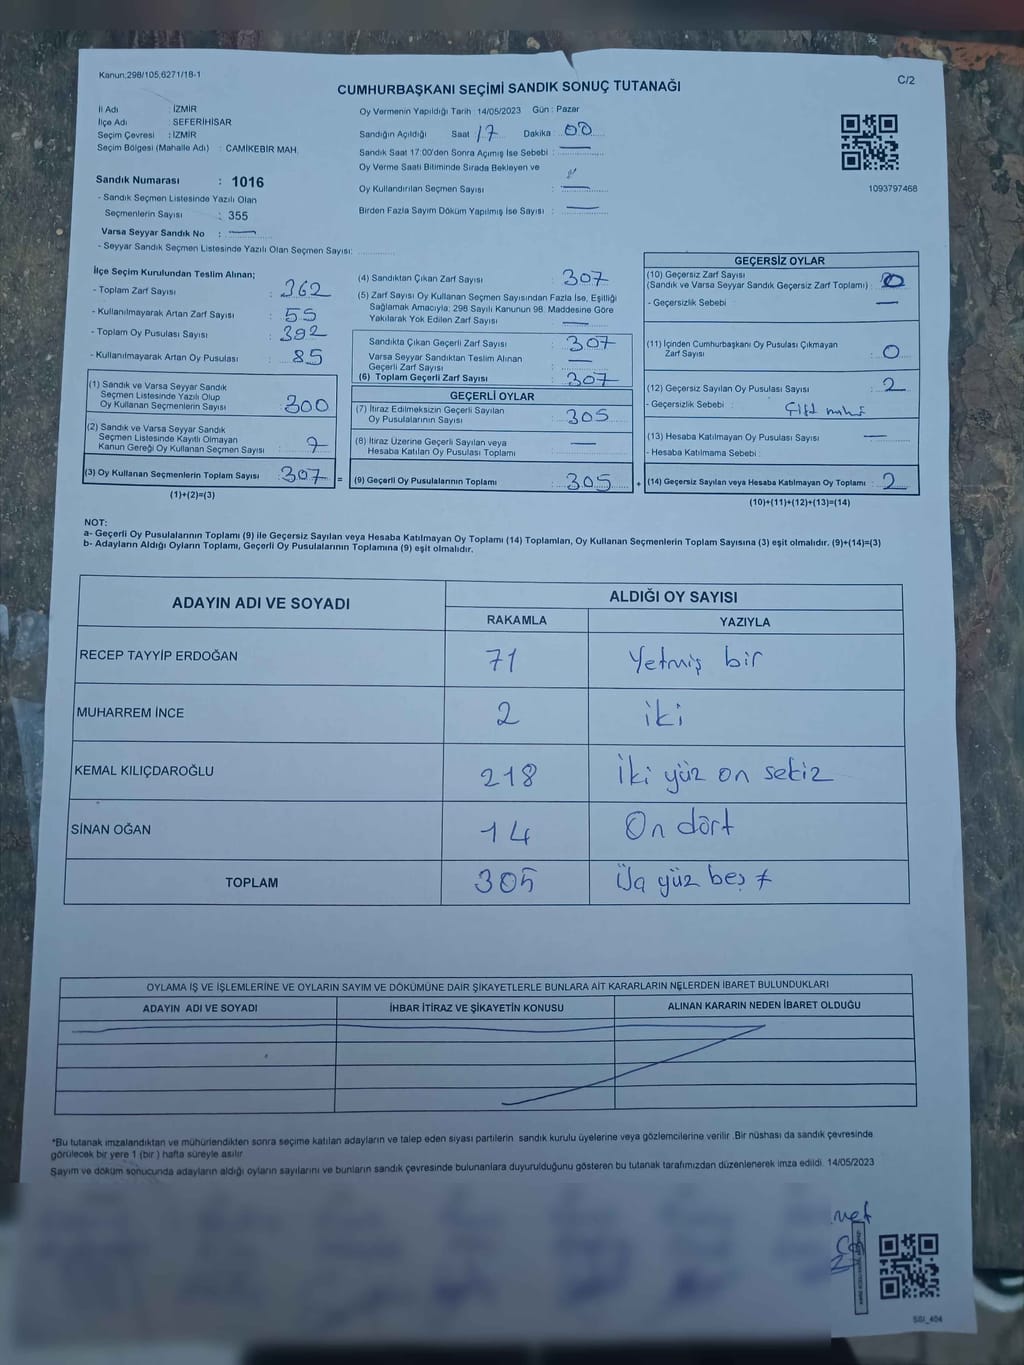 Kanun:298/105,6271/18-1
CUMHURBAŞKANI SEÇİMİ SANDIK SONUÇ TUTANAĞI
C/2
İl Adı : İZMİR
İlçe Adı : SEFERİHİSAR
Seçim Çevresi : İZMİR
Seçim Bölgesi (Mahalle Adı) : CAMİKEBİR MAH.
Oy Vermenin Yapıldığı Tarih : 14/05/2023 Gün : Pazar
Sandığın Açıldığı Saat 17 Dakika : 00
Sandık Saat 17:00'den Sonra Açımış İse Sebebi : —
Oy Verme Saati Bitiminde Sırada Bekleyen ve
Oy Kullandırılan Seçmen Sayısı : —
Birden Fazla Sayım Döküm Yapılmış İse Sayısı : —
1093797468
Sandık Numarası : 1016
- Sandık Seçmen Listesinde Yazılı Olan
Seçmenlerin Sayısı : 355
Varsa Seyyar Sandık No : —
- Seyyar Sandık Seçmen Listesinde Yazılı Olan Seçmen Sayısı:
İlçe Seçim Kurulundan Teslim Alınan;
- Toplam Zarf Sayısı : 362
- Kullanılmayarak Artan Zarf Sayısı : 55
- Toplam Oy Pusulası Sayısı : 392
- Kullanılmayarak Artan Oy Pusulası : 85
(1) Sandık ve Varsa Seyyar Sandık
Seçmen Listesinde Yazılı Olup
Oy Kullanan Seçmenlerin Sayısı : 300
(2) Sandık ve Varsa Seyyar Sandık
Seçmen Listesinde Kayıtlı Olmayan
Kanun Gereği Oy Kullanan Seçmen Sayısı : 7
(3) Oy Kullanan Seçmenlerin Toplam Sayısı : 307 =
(1)+(2)=(3)
(4) Sandıktan Çıkan Zarf Sayısı : 307
(5) Zarf Sayısı Oy Kullanan Seçmen Sayısından Fazla İse, Eşitliği
Sağlamak Amacıyla; 298 Sayılı Kanunun 98. Maddesine Göre
Yakılarak Yok Edilen Zarf Sayısı : —
Sandıkta Çıkan Geçerli Zarf Sayısı : 307
Varsa Seyyar Sandıktan Teslim Alınan
Geçerli Zarf Sayısı : —
(6) Toplam Geçerli Zarf Sayısı : 307
GEÇERLİ OYLAR
(7) İtiraz Edilmeksizin Geçerli Sayılan
Oy Pusulalarının Sayısı : 305
(8) İtiraz Üzerine Geçerli Sayılan veya
Hesaba Katılan Oy Pusulası Toplamı : —
(9) Geçerli Oy Pusulalarının Toplamı : 305 +
GEÇERSİZ OYLAR
(10) Geçersiz Zarf Sayısı
(Sandık ve Varsa Seyyar Sandık Geçersiz Zarf Toplamı) : 0
- Geçersizlik Sebebi —
(11) İçinden Cumhurbaşkanı Oy Pusulası Çıkmayan
Zarf Sayısı : 0
(12) Geçersiz Sayılan Oy Pusulası Sayısı : 2
- Geçersizlik Sebebi : Çift
(13) Hesaba Katılmayan Oy Pusulası Sayısı : —
- Hesaba Katılmama Sebebi :
(14) Geçersiz Sayılan veya Hesaba Katılmayan Oy Toplamı : 2
(10)+(11)+(12)+(13)=(14)
NOT:
a- Geçerli Oy Pusulalarının Toplamı (9) ile Geçersiz Sayılan veya Hesaba Katılmayan Oy Toplamı (14) Toplamları, Oy Kullanan Seçmenlerin Toplam Sayısına (3) eşit olmalıdır. (9)+(14)=(3)
b- Adayların Aldığı Oyların Toplamı, Geçerli Oy Pusulalarının Toplamına (9) eşit olmalıdır.
ADAYIN ADI VE SOYADI ALDIĞI OY SAYISI
RAKAMLA YAZIYLA
RECEP TAYYİP ERDOĞAN 71 Yetmiş bir
MUHARREM İNCE 2 iki
KEMAL KILIÇDAROĞLU 218 İki yüz on sekiz
SİNAN OĞAN 14 On dört
TOPLAM 305 Üç yüz beş
OYLAMA İŞ VE İŞLEMLERİNE VE OYLARIN SAYIM VE DÖKÜMÜNE DAİR ŞİKAYETLERLE BUNLARA AİT KARARLARIN NELERDEN İBARET BULUNDUKLARI
ADAYIN ADI VE SOYADI İHBAR İTİRAZ VE ŞİKAYETİN KONUSU ALINAN KARARIN NEDEN İBARET OLDUĞU
*Bu tutanak imzalandıktan ve mühürlendikten sonra seçime katılan adayların ve talep eden siyasi partilerin sandık kurulu üyelerine veya gözlemcilerine verilir .Bir nüshası da sandık çevresinde
görülecek bir yere 1 (bir ) hafta süreyle asılır
Sayım ve döküm sonucunda adayların aldığı oyların sayılarını ve bunların sandık çevresinde bulunanlara duyurulduğunu gösteren bu tutanak tarafımızdan düzenlenerek imza edildi. 14/05/2023
SSI_404